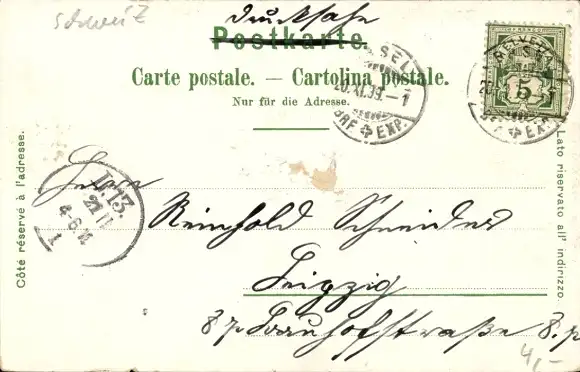 Schweiz
Drucksache
Postkarte.
Carte postale. — Cartolina postale.
Nur für die Adresse.
BASEL
20.XI.99.-1
BRF EXP.
HELVETIA
5
BASEL
20.XI
BRF EXP.
Côté réservé à l'adresse.
Lato riservato all' indirizzo.
L.13.
21 11
4-6 N
t
Herrn
Reinhold Schneider
Leipzig
Fraunhofstraße 8.p
4,-